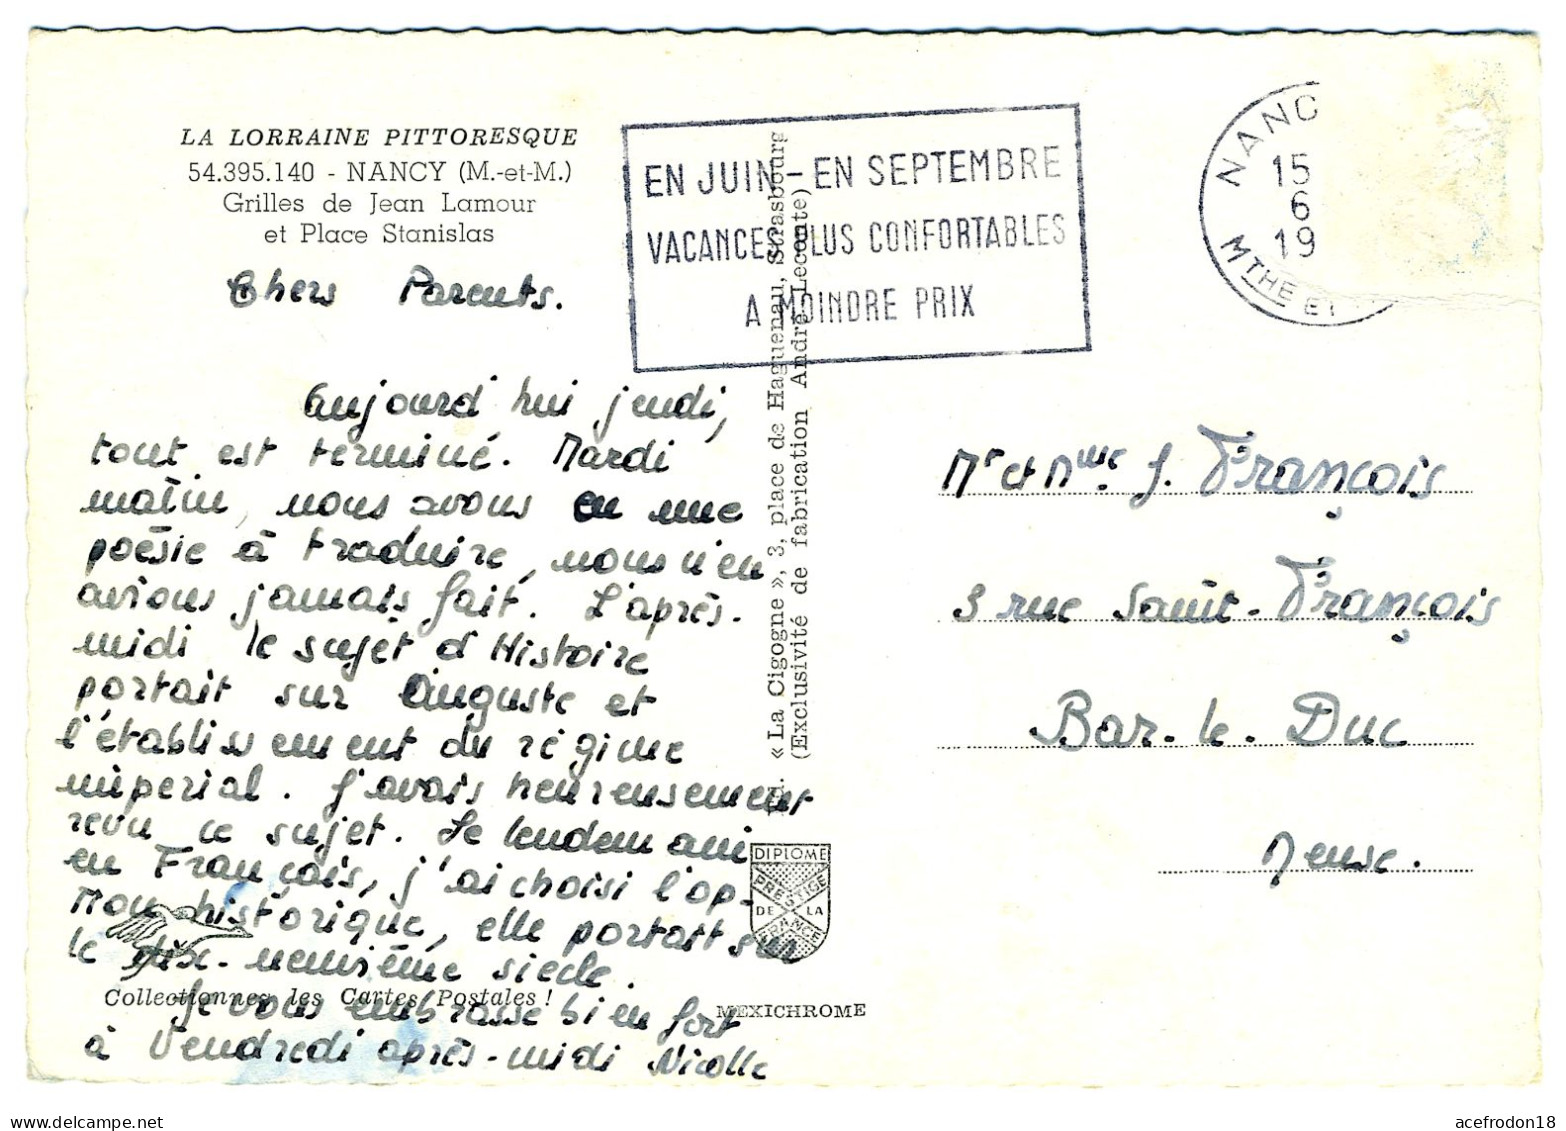 LA LORRAINE PITTORESQUE
54.395.140 - NANCY (M.-et-M.)
Grilles de Jean Lamour
et Place Stanislas
Chers Parents.
Aujourd'hui jeudi,
tout est terminé. Mardi
matin, nous avons eu une
poésie à traduire, nous n'en
avions jamais fait. L'après-
midi le sujet d'Histoire
portait sur Auguste et
l'établissement du régime
impérial. J'avais heureusement
revu ce sujet. Le lendemain
en Français, j'ai choisi l'op-
tion historique, elle portait sur
le dix-neuvième siècle.
Je vous embrasse bien fort
à Vendredi après-midi Nicolle
Collectionnez les Cartes Postales !
EN JUIN - EN SEPTEMBRE
VACANCES PLUS CONFORTABLES
A MOINDRE PRIX
« La Cigogne », 3, place de Haguenau, Strasbourg
(Exclusivité de fabrication André Leconte)
DIPLOME
PRESTIGE
DE LA
FRANCE
MEXICHROME
NANC
15
6
19
MTHE ET
Mr et Mme. J. François
3 rue Saint-François
Bar-le-Duc
Meuse.
delcampe.net
acefrodon18